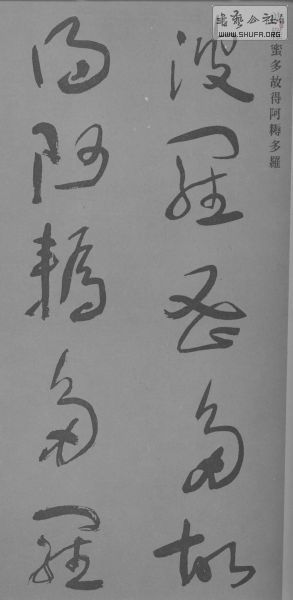 波羅蜜多故
得阿耨多羅
蜜多故得阿耨多羅
WWW.SHUFA.ORG